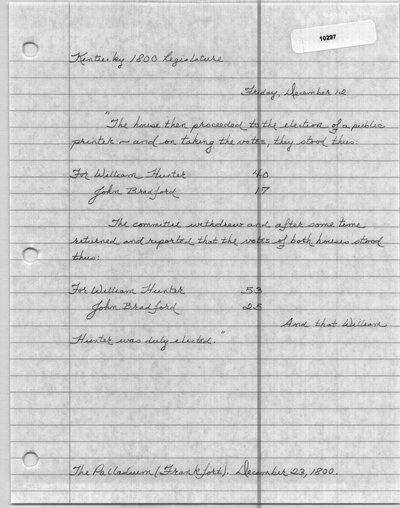 10297
Kentucky 1800 Legislature
Friday, December 12
"The house then proceeded to the election of a public
printer – and on taking the votes, they stood thus:
For William Hunter 40
John Bradford 17
The committee withdrew and after some time
returned and reported that the votes of both houses stood
thus:
For William Hunter 53
John Bradford 25
And that William
Hunter was duly elected."
The Palladium (Frankfort). December 23, 1800.